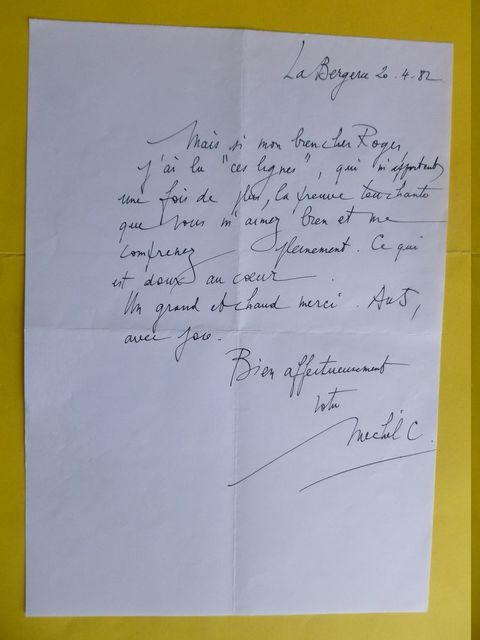 La Bergerie 20-4-82
Mais si mon bien cher Roger
j'ai lu "ces lignes", qui m'apportent
une fois de plus, la preuve touchante
que vous m'aimez bien et me
comprenez pleinement. Ce qui
est doux au cœur.
Un grand et chaud merci. Au 5,
avec joie.
Bien affectueusement
votre
Michel C.